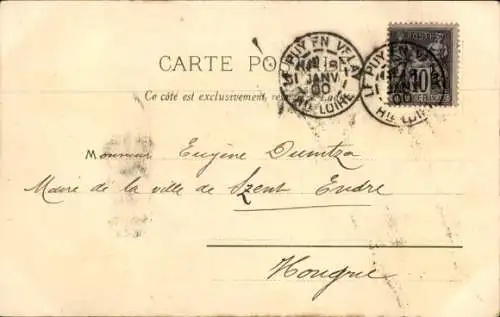 CARTE PO
LE PUY EN VELAY
1 JANV
00
HTE LOIRE
LE PUY EN VELAY
00
HTE LOIRE
10
Ce côté est exclusivement
Monsieur Eugène Dumtza
Maire de la ville de Szent Endre
Hongrie